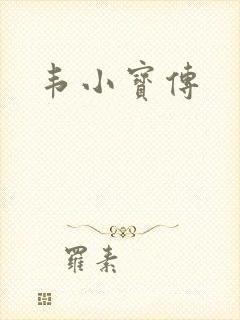 韦小寳傳
羅素